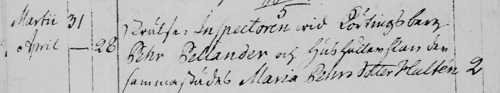 Martii 31
April — 28
Frälse Inspectoren wid Körtingsberg
Pehr Pellander och Hushållerskan der
sammastädes Maria Pehrs Dotter Hultén 2